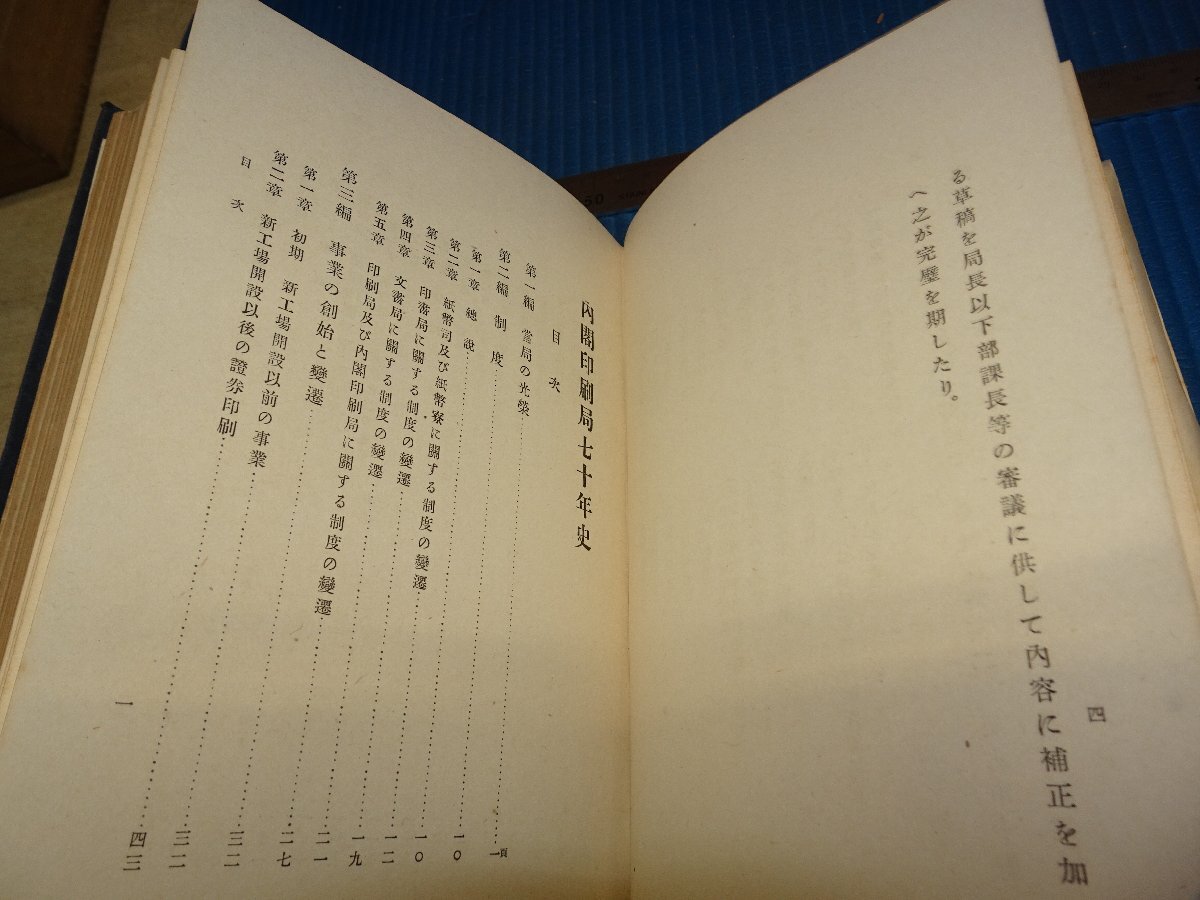 る草稿を局長以下部課長等の審議に供して內容に補正を加
へ之が完璧を期したり。
四
內閣印刷局七十年史
目次
頁
第一編 當局の光榮……一
第二編 制度……一〇
第一章 總說……一〇
第二章 紙幣司及び紙幣寮に關する制度の變遷……一二
第三章 印書局に關する制度の變遷……一九
第四章 文書局に關する制度の變遷……二一
第五章 印刷局及び內閣印刷局に關する制度の變遷……二七
第三編 事業の創始と變遷……三二
第一章 初期 新工場開設以前の事業……三二
第二章 新工場開設以後の證券印刷……四三
目次
一